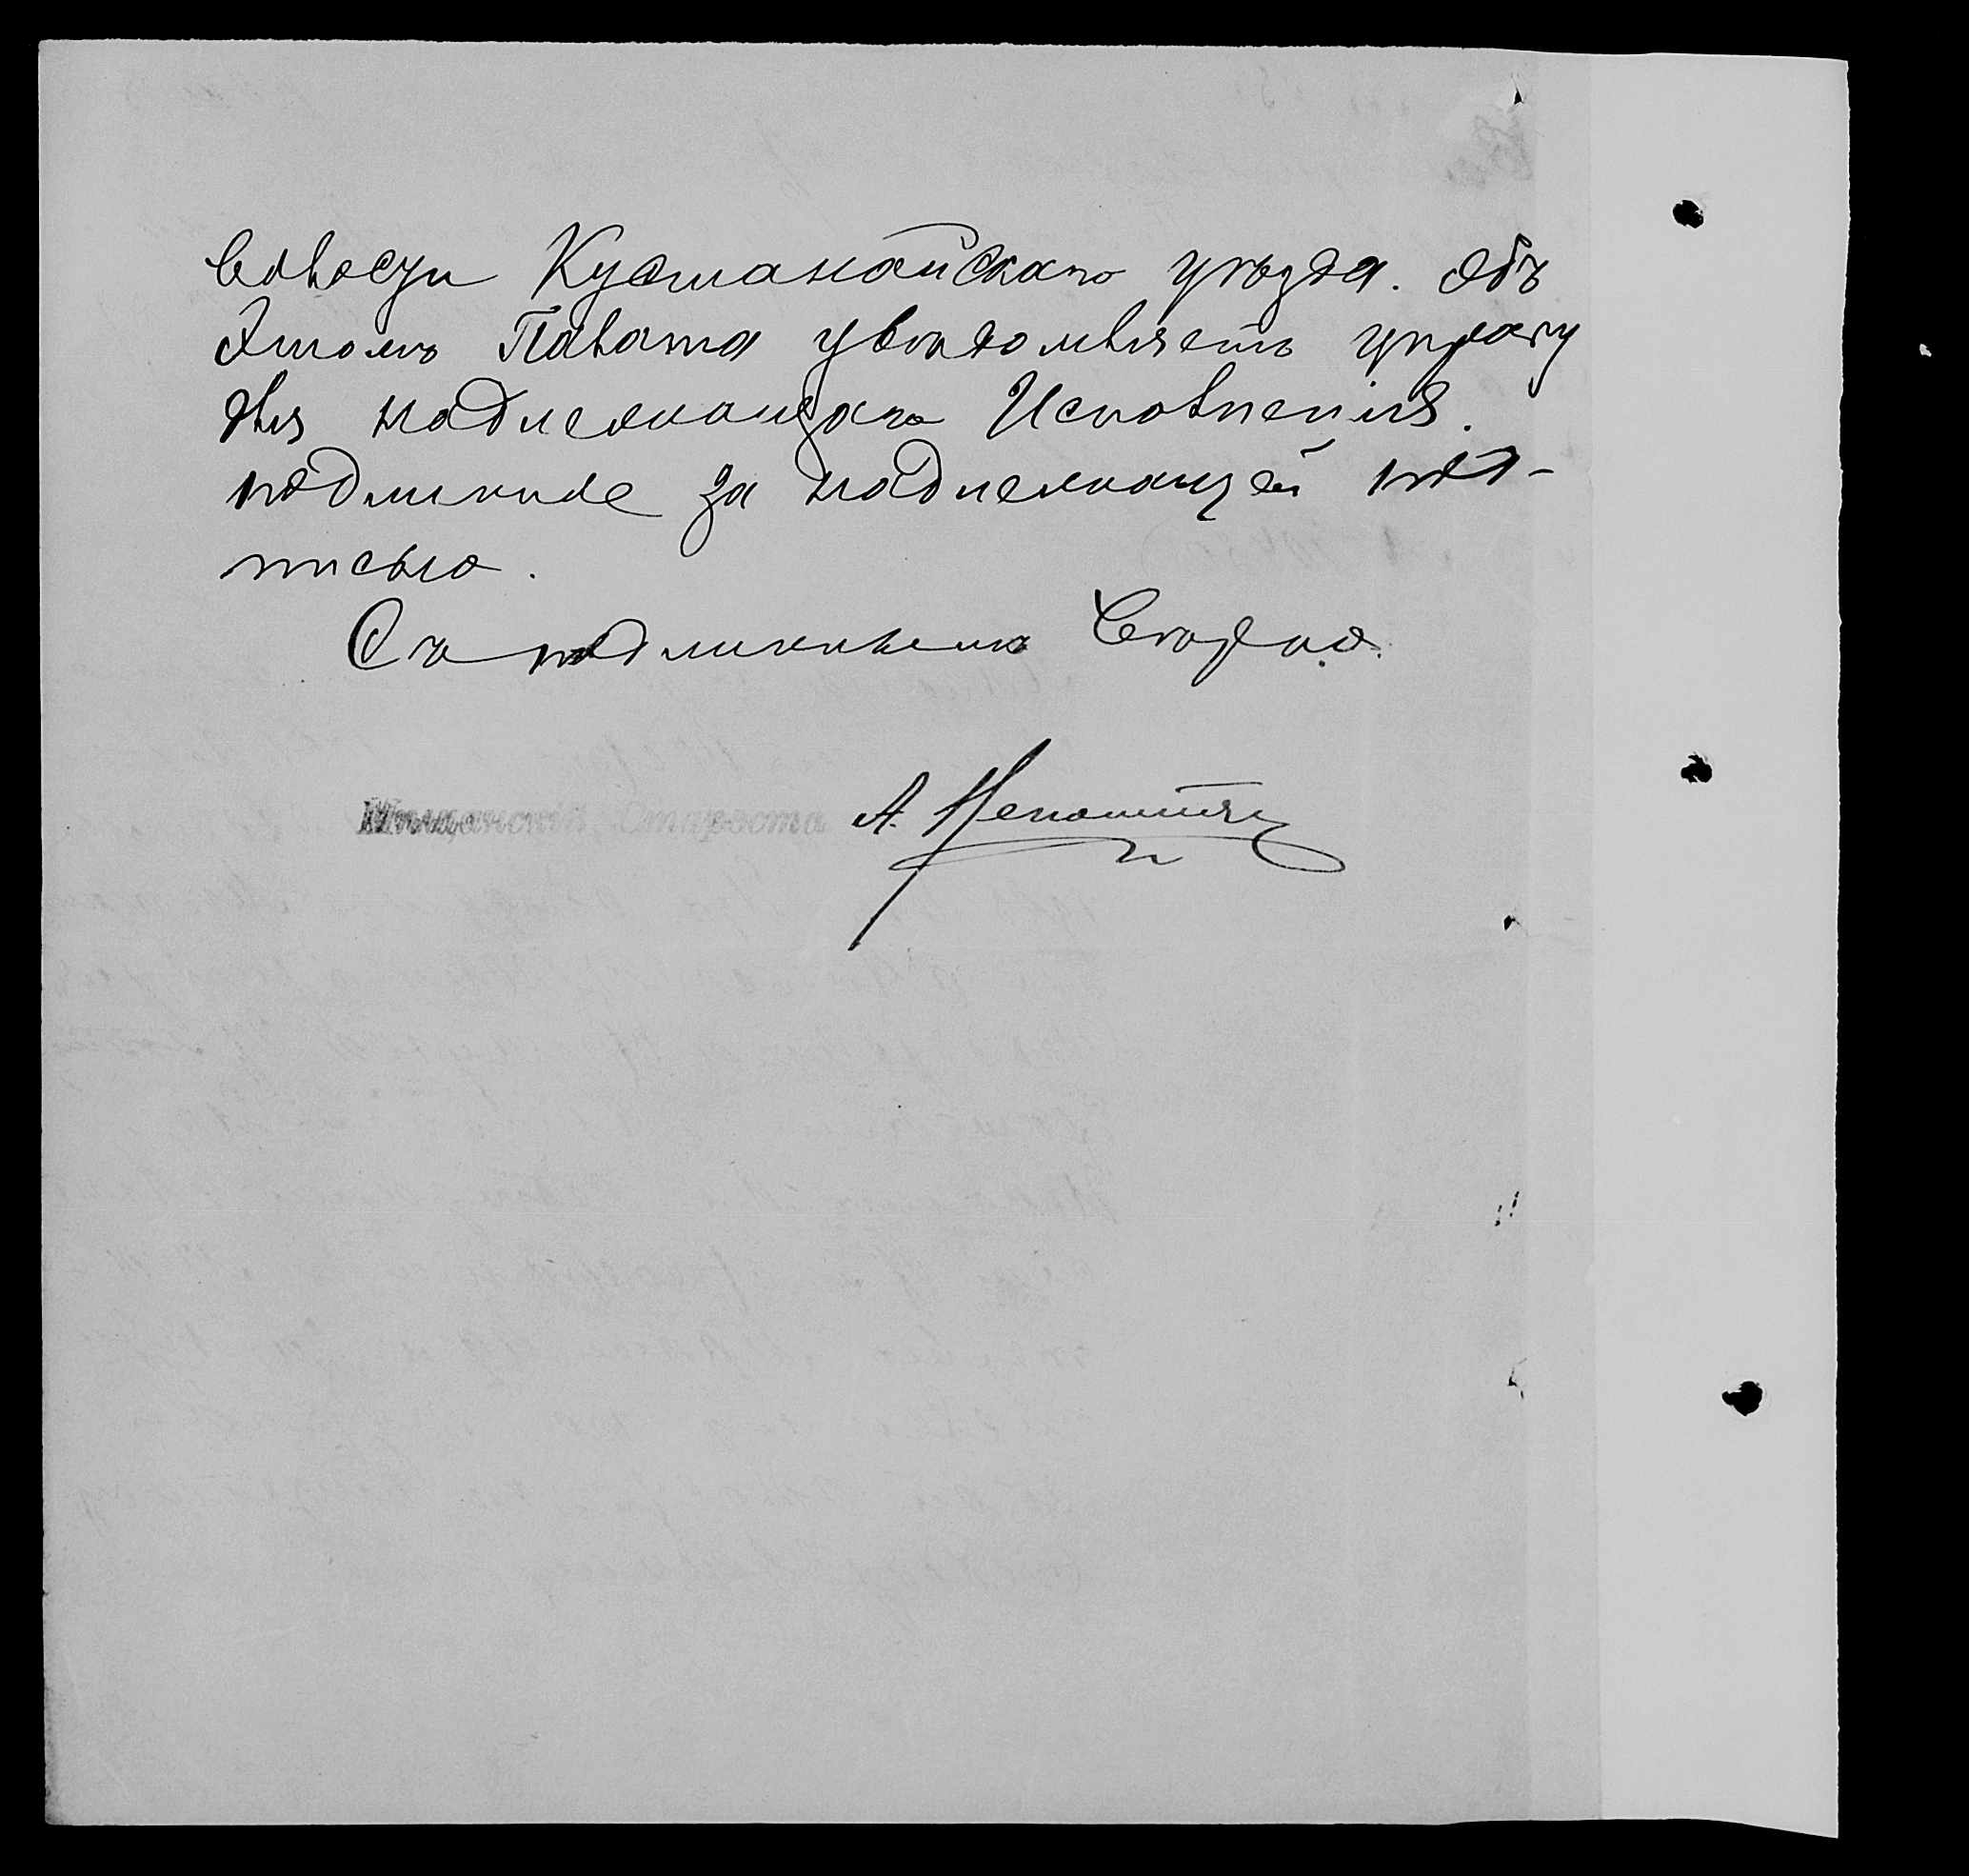 волости Кустанайскаго уѣзда. Объ
этомъ Палата увѣдомляетъ управу
для надлежащаго Исполненія.
подлинное за надлежащей под-
писью.
Съ подлиннымъ вѣрно.
Мѣщанскій Староста А.